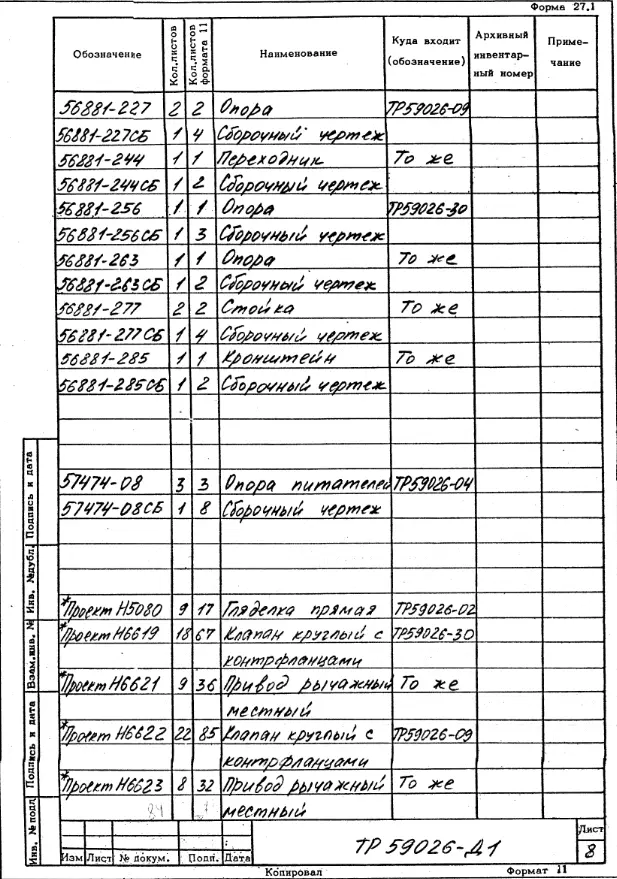 Форма 27.1
Обозначение Кол.листов Кол.листов формата 11 Наименование Куда входит (обозначение) Архивный инвентар- ный номер Приме- чание
56881-227 2 2 Опора ТР59026-09
56881-227СБ 1 4 Сборочный чертеж
56881-244 1 1 Переходник То же
56881-244СБ 1 2 Сборочный чертеж
56881-256 1 1 Опора ТР59026-30
56881-256СБ 1 3 Сборочный чертеж
56881-263 1 1 Опора То же
56881-263СБ 1 2 Сборочный чертеж
56881-277 2 2 Стойка То же
56881-277СБ 1 4 Сборочный чертеж
56881-285 1 1 Кронштейн То же
56881-285СБ 1 2 Сборочный чертеж
57474-08 3 3 Опора питателей ТР59026-04
57474-08СБ 1 8 Сборочный чертеж
*Проект Н5080 9 17 Гляделка прямая ТР59026-02
*Проект Н6619 18 67 Клапан круглый с ТР59026-30
контрфланцами
*Проект Н6621 9 36 Привод рычажный То же
местный
*Проект Н6622 22 85 Клапан круглый с ТР59026-09
контрфланцами
*Проект Н6623 8 32 Привод рычажный То же
местный
Инв. № подл. Подпись и дата Взам.инв. № Инв. №дубл. Подпись и дата
Изм Лист № докум. Подп. Дата
ТР 59026-Д1
Лист
8
Копировал Формат 11